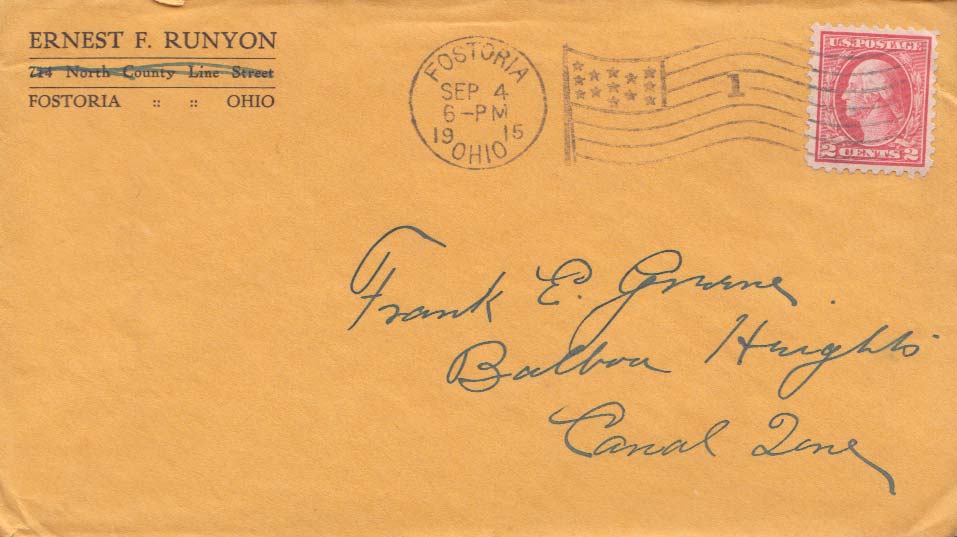 ERNEST F. RUNYON
714 North County Line Street
FOSTORIA :: :: OHIO
FOSTORIA
SEP 4
6-PM
1915
OHIO
1
U.S. POSTAGE
2 CENTS 2
Frank E.
Balboa Heights
Canal Zone